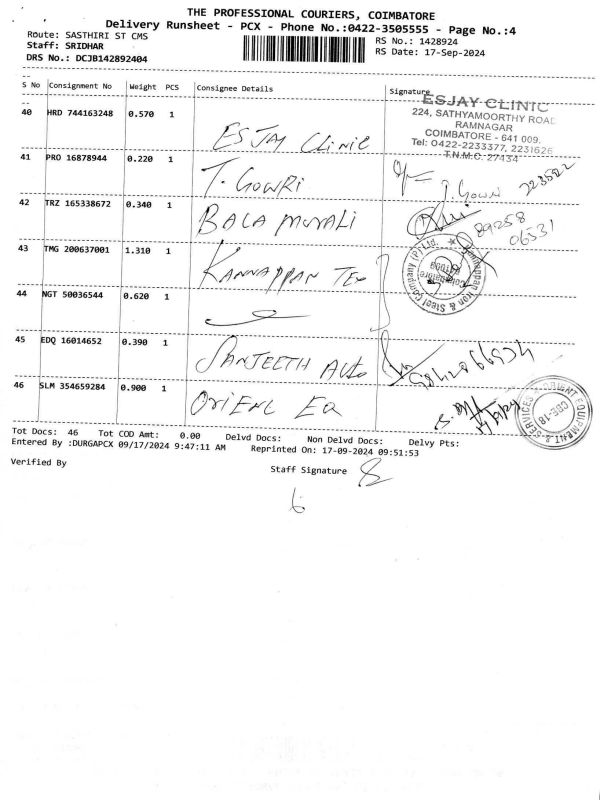 THE PROFESSIONAL COURIERS, COIMBATORE
Delivery Runsheet - PCX - Phone No.:0422-3505555 - Page No.:4
Route: SASTHIRI ST CMS
RS No.: 1428924
Staff: SRIDHAR
RS Date: 17-Sep-2024
DRS No.: DCJB142892404
S No Consignment No Weight PCS Consignee Details Signature
ESJAY CLINIC
224, SATHYAMOORTHY ROAD
RAMNAGAR
COIMBATORE - 641 009.
Tel: 0422-2233377, 2231626
T.N.M.C. 27434
40 HRD 744163248 0.570 1 ESJAY CLiNiC
41 PRO 16878944 0.220 1 T. GOWRi
42 TRZ 165338672 0.340 1 BALA MURALi
89258
06531
43 TMG 200637001 1.310 1 KANNAPPAN Tex
Kannappan Iron & Steel Company (P) Ltd.
44 NGT 50036544 0.620 1
45 EDQ 16014652 0.390 1 SANJEETH Auto
46 SLM 354659284 0.900 1 ORiENC EQ
ORIENT EQUIPMENT & SERVICES
CBE-18
Tot Docs: 46 Tot COD Amt: 0.00 Delvd Docs: Non Delvd Docs: Delvy Pts:
Entered By :DURGAPCX 09/17/2024 9:47:11 AM Reprinted On: 17-09-2024 09:51:53
Verified By
Staff Signature